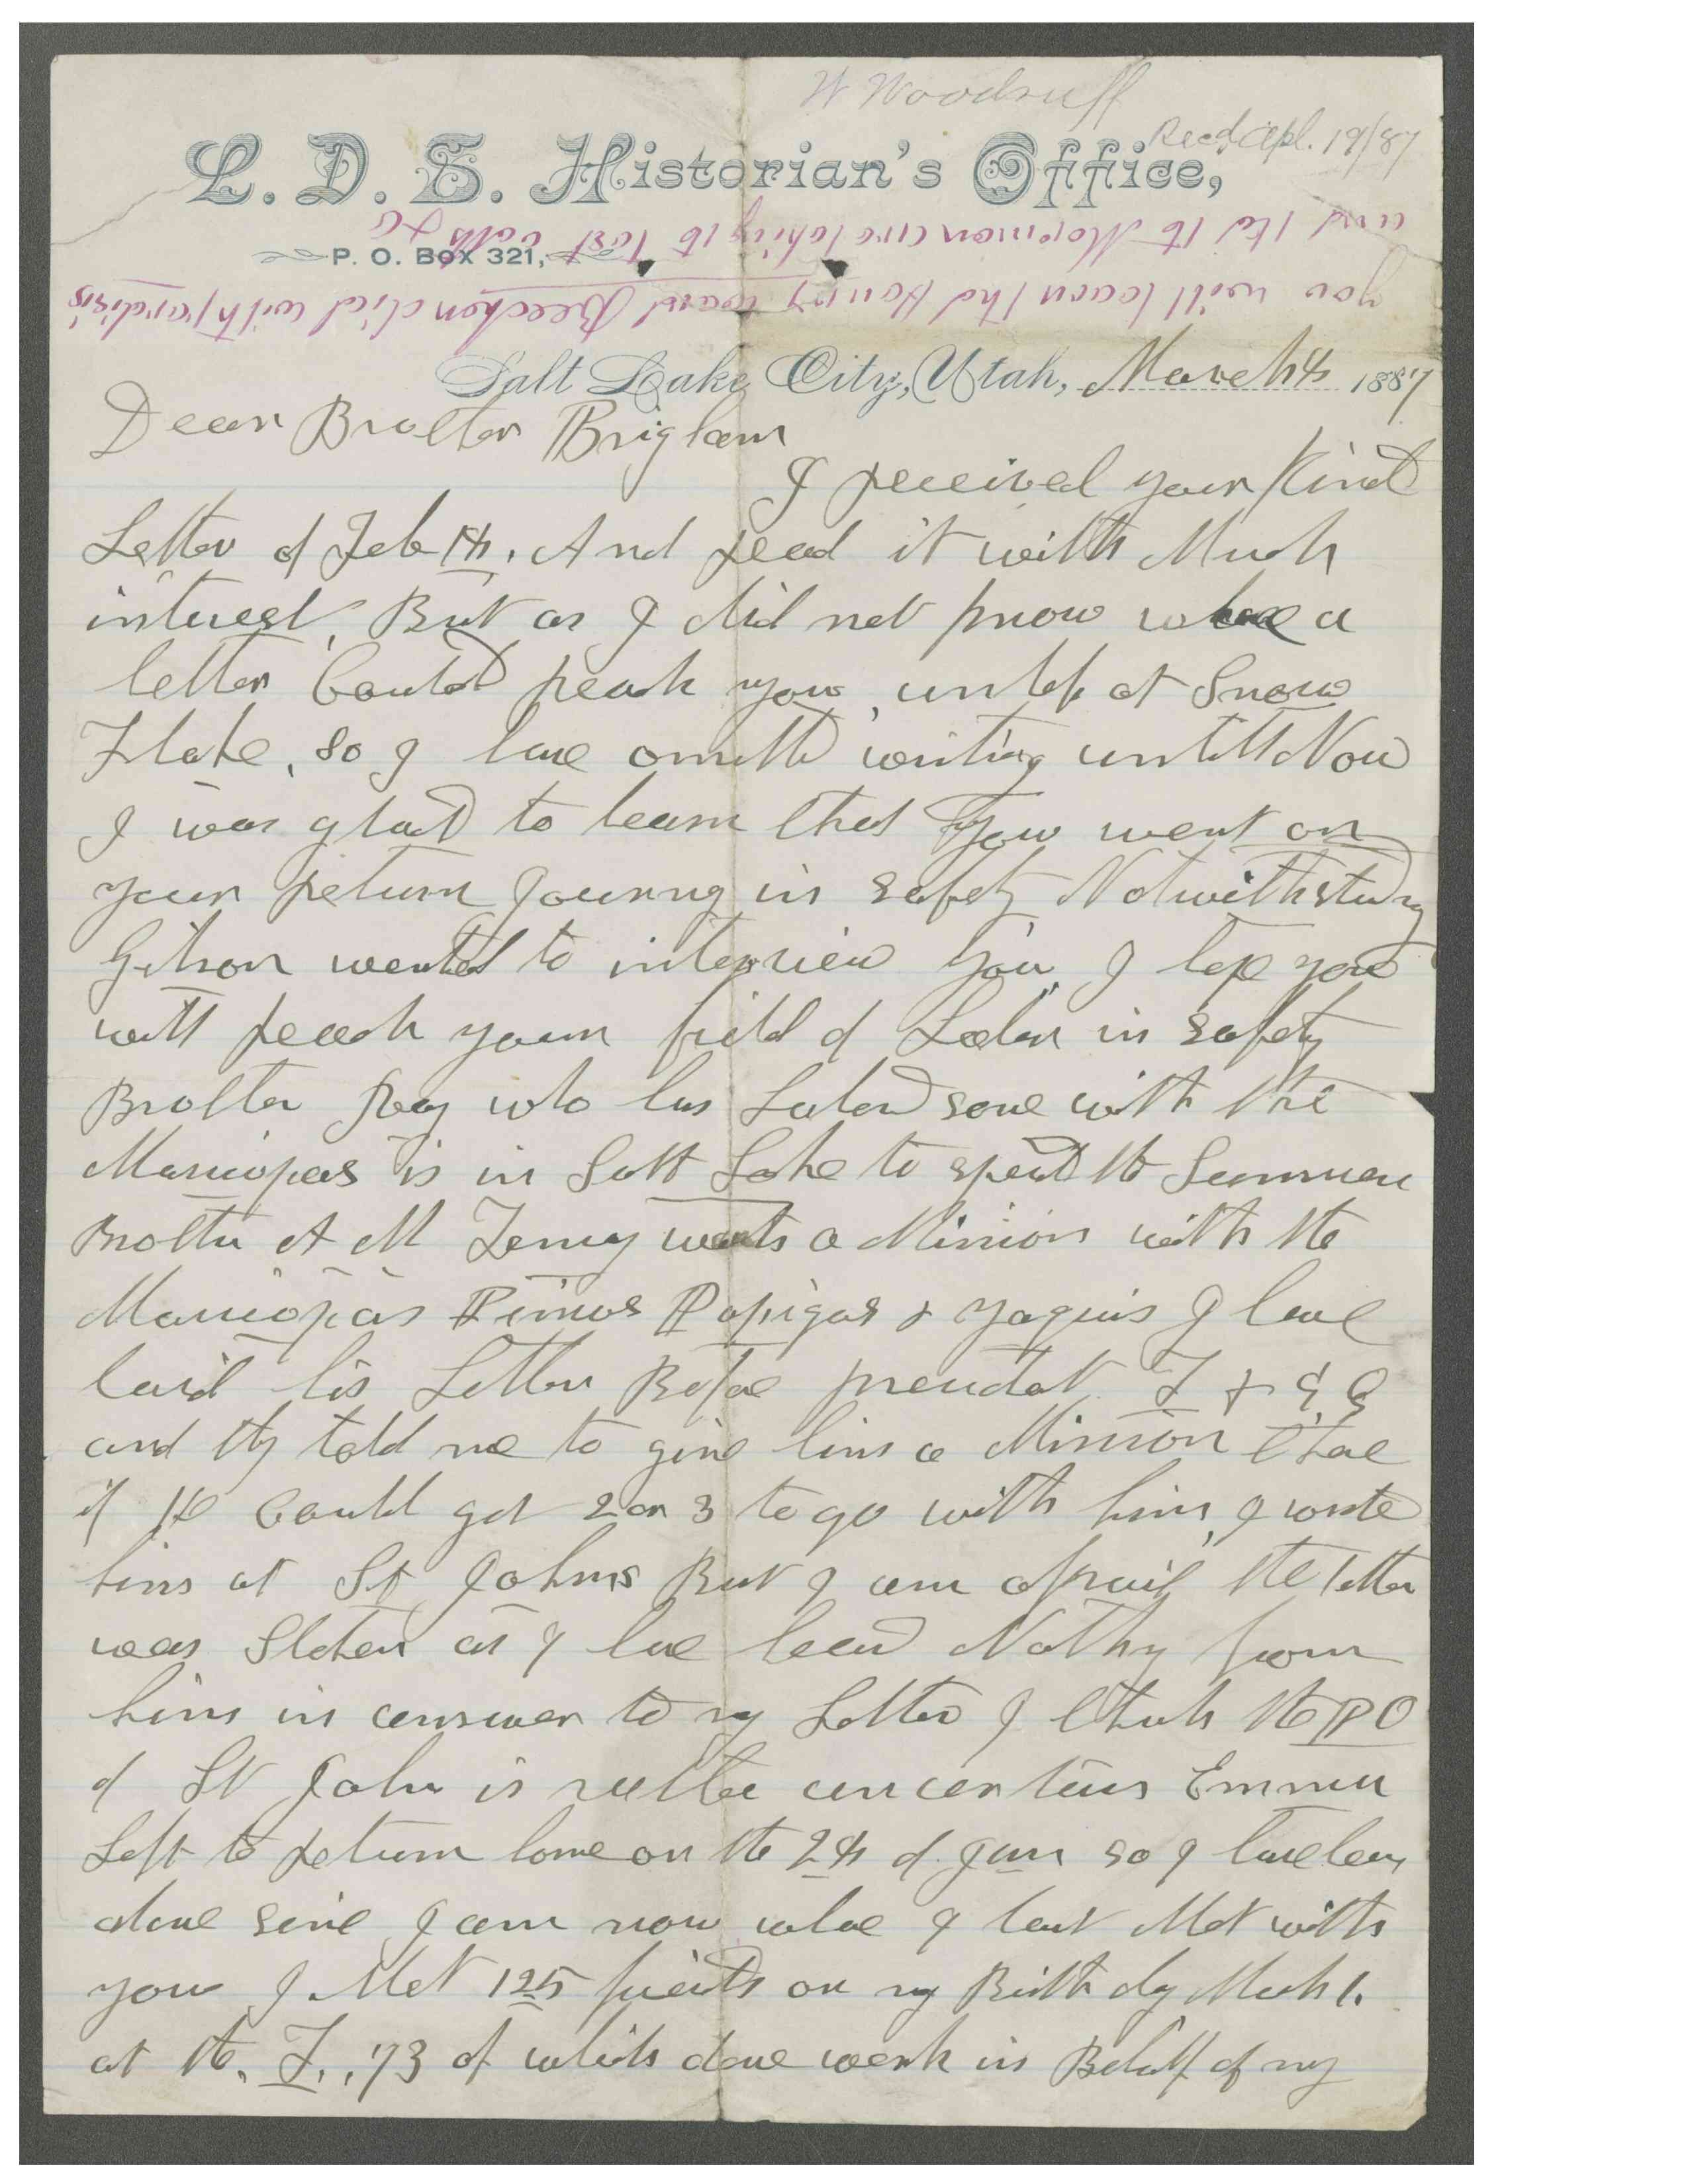 W Woodruff
Recd Apl. 19/87
L. D. S. Historian's Office,
P. O. Box 321,
you will learn that Henry ward Beecher died with
and that the Mormon are taking the test oath &c
Salt Lake City, Utah, March 4th 1887
Dear Brother Brigham
I received your Kind
Letter of Feb 1st. And read it with Much
interest, But as I did not know whare a
letter Could reach you, untill at Snow
Flake, so I have omitted writing untill Now
I was glad to learn that you went on
your return Journey in safety Notwithstanding
Gibson wanted to interview you, I hope you
will reach your field of Labor in safety
Brother who has Labord some with the
Maricopas is in Salt Lake to spend the Summer
Brother A M Tenny wants a Mission with the
Maricopas Pimos Papigos & Yaquis I have
laid his Letter Before president T &
and they told me to give him a Mission thare
if He Could get 2 or 3 to go with him, I wrote
him at St Johns But I am afraid the letter
was Stolen as I have heard Nothing from
him in answer to my Letter I think the PO
of St John is rather uncertain Emma
Left to return home on the of Jan so I have been
alone since I am now whare I last Met with
you I Met 125 friends on my Birth day March 1.
at the T., 73 of which done work in Behalf of my